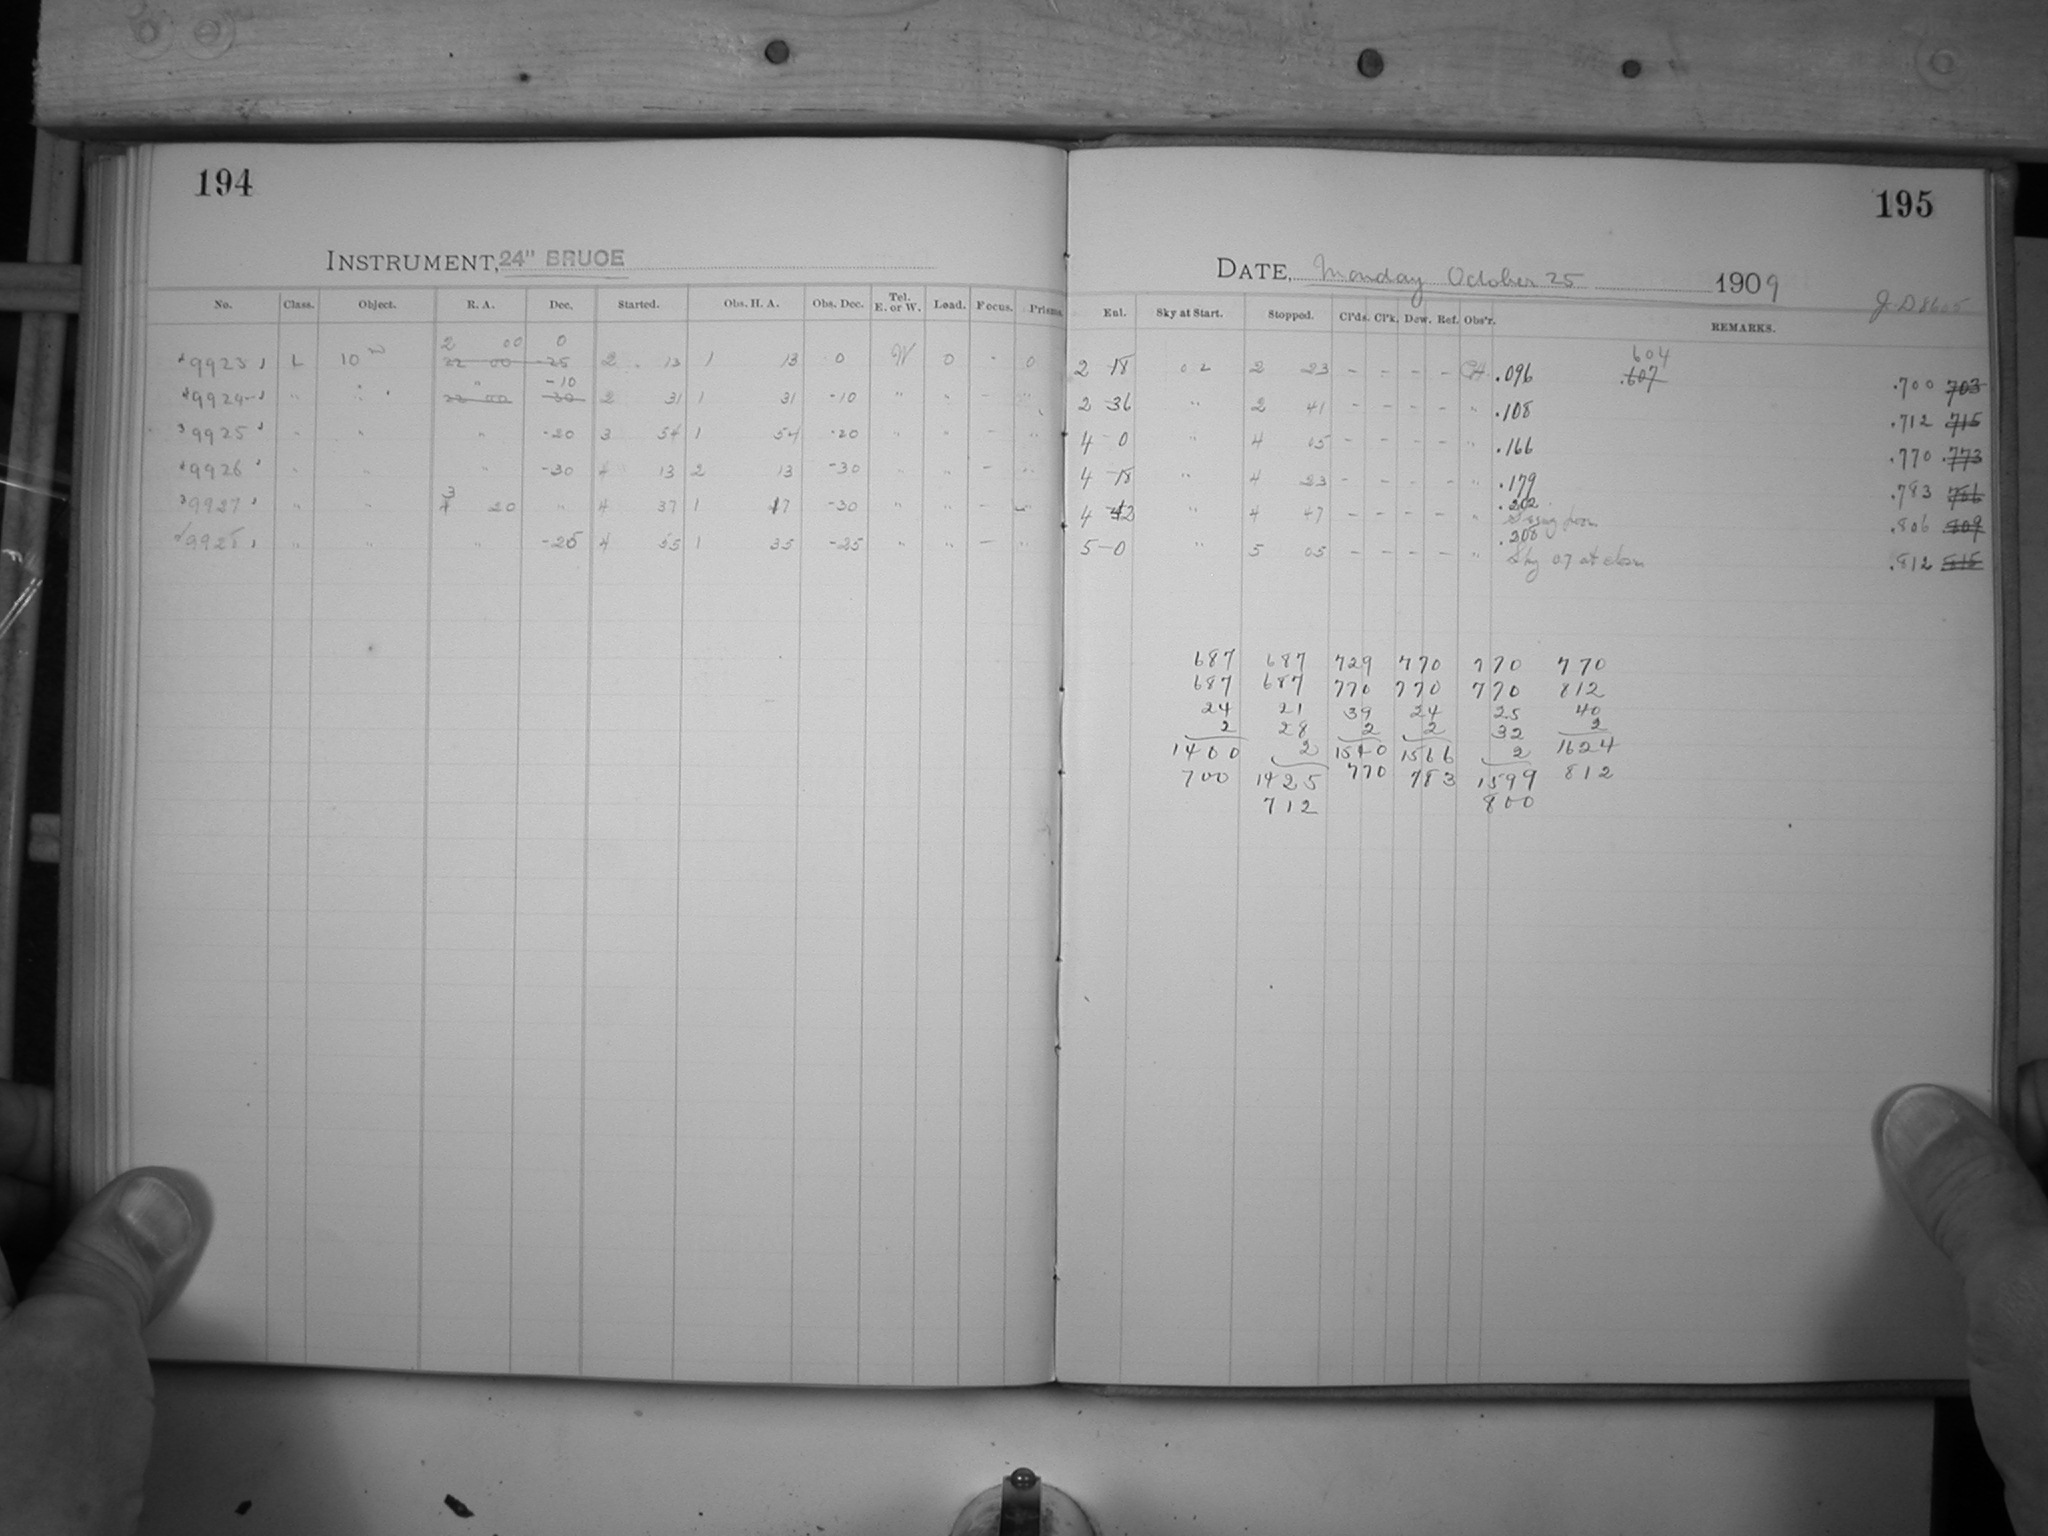 194
INSTRUMENT, 24" BRUCE
No. Class. Object. R. A. Dec. Started. Obs. H. A. Obs. Dec. Tel. E. or W. Load. Focus. Prisms.
2 00 0
9923 L 10m 22 00 -25 2 13 1 13 0 W 0 - 0
" -10
9924 " " 22 00 -30 2 31 1 31 -10 " " - "
9925 " " " -20 3 54 1 54 -20 " " - "
9926 " " " -30 4 13 2 13 -30 " " - "
3
9927 " " 4 20 " 4 37 1 17 -30 " " -
9928 " " " -25 4 55 1 35 -25 " " - "
195
DATE, Monday October 25 1909
J. D. 8605
Ent. Sky at Start. Stopped. Cl'ds. Cl'k. Dew. Ref. Obs'r. REMARKS.
604
2 18 02 2 23 - - - - .096 .607 .700 703
2 36 " 2 41 - - - - " .108 .712 715
4 0 " 4 05 - - - - " .166 .770 .773
4 18 " 4 23 - - - - " .179 .783 786
4 42 " 4 47 - - - - " .202 .806 809
Seeing poor
5-0 " 5 05 - - - - " .208 .812 815
Sky 07 at close
687 687 729 770 770 770
687 687 770 770 770 812
24 21 39 24 25 40
2 28 2 2 32 2
1400 2 1540 1566 2 1624
700 1425 770 783 1599 812
712 800